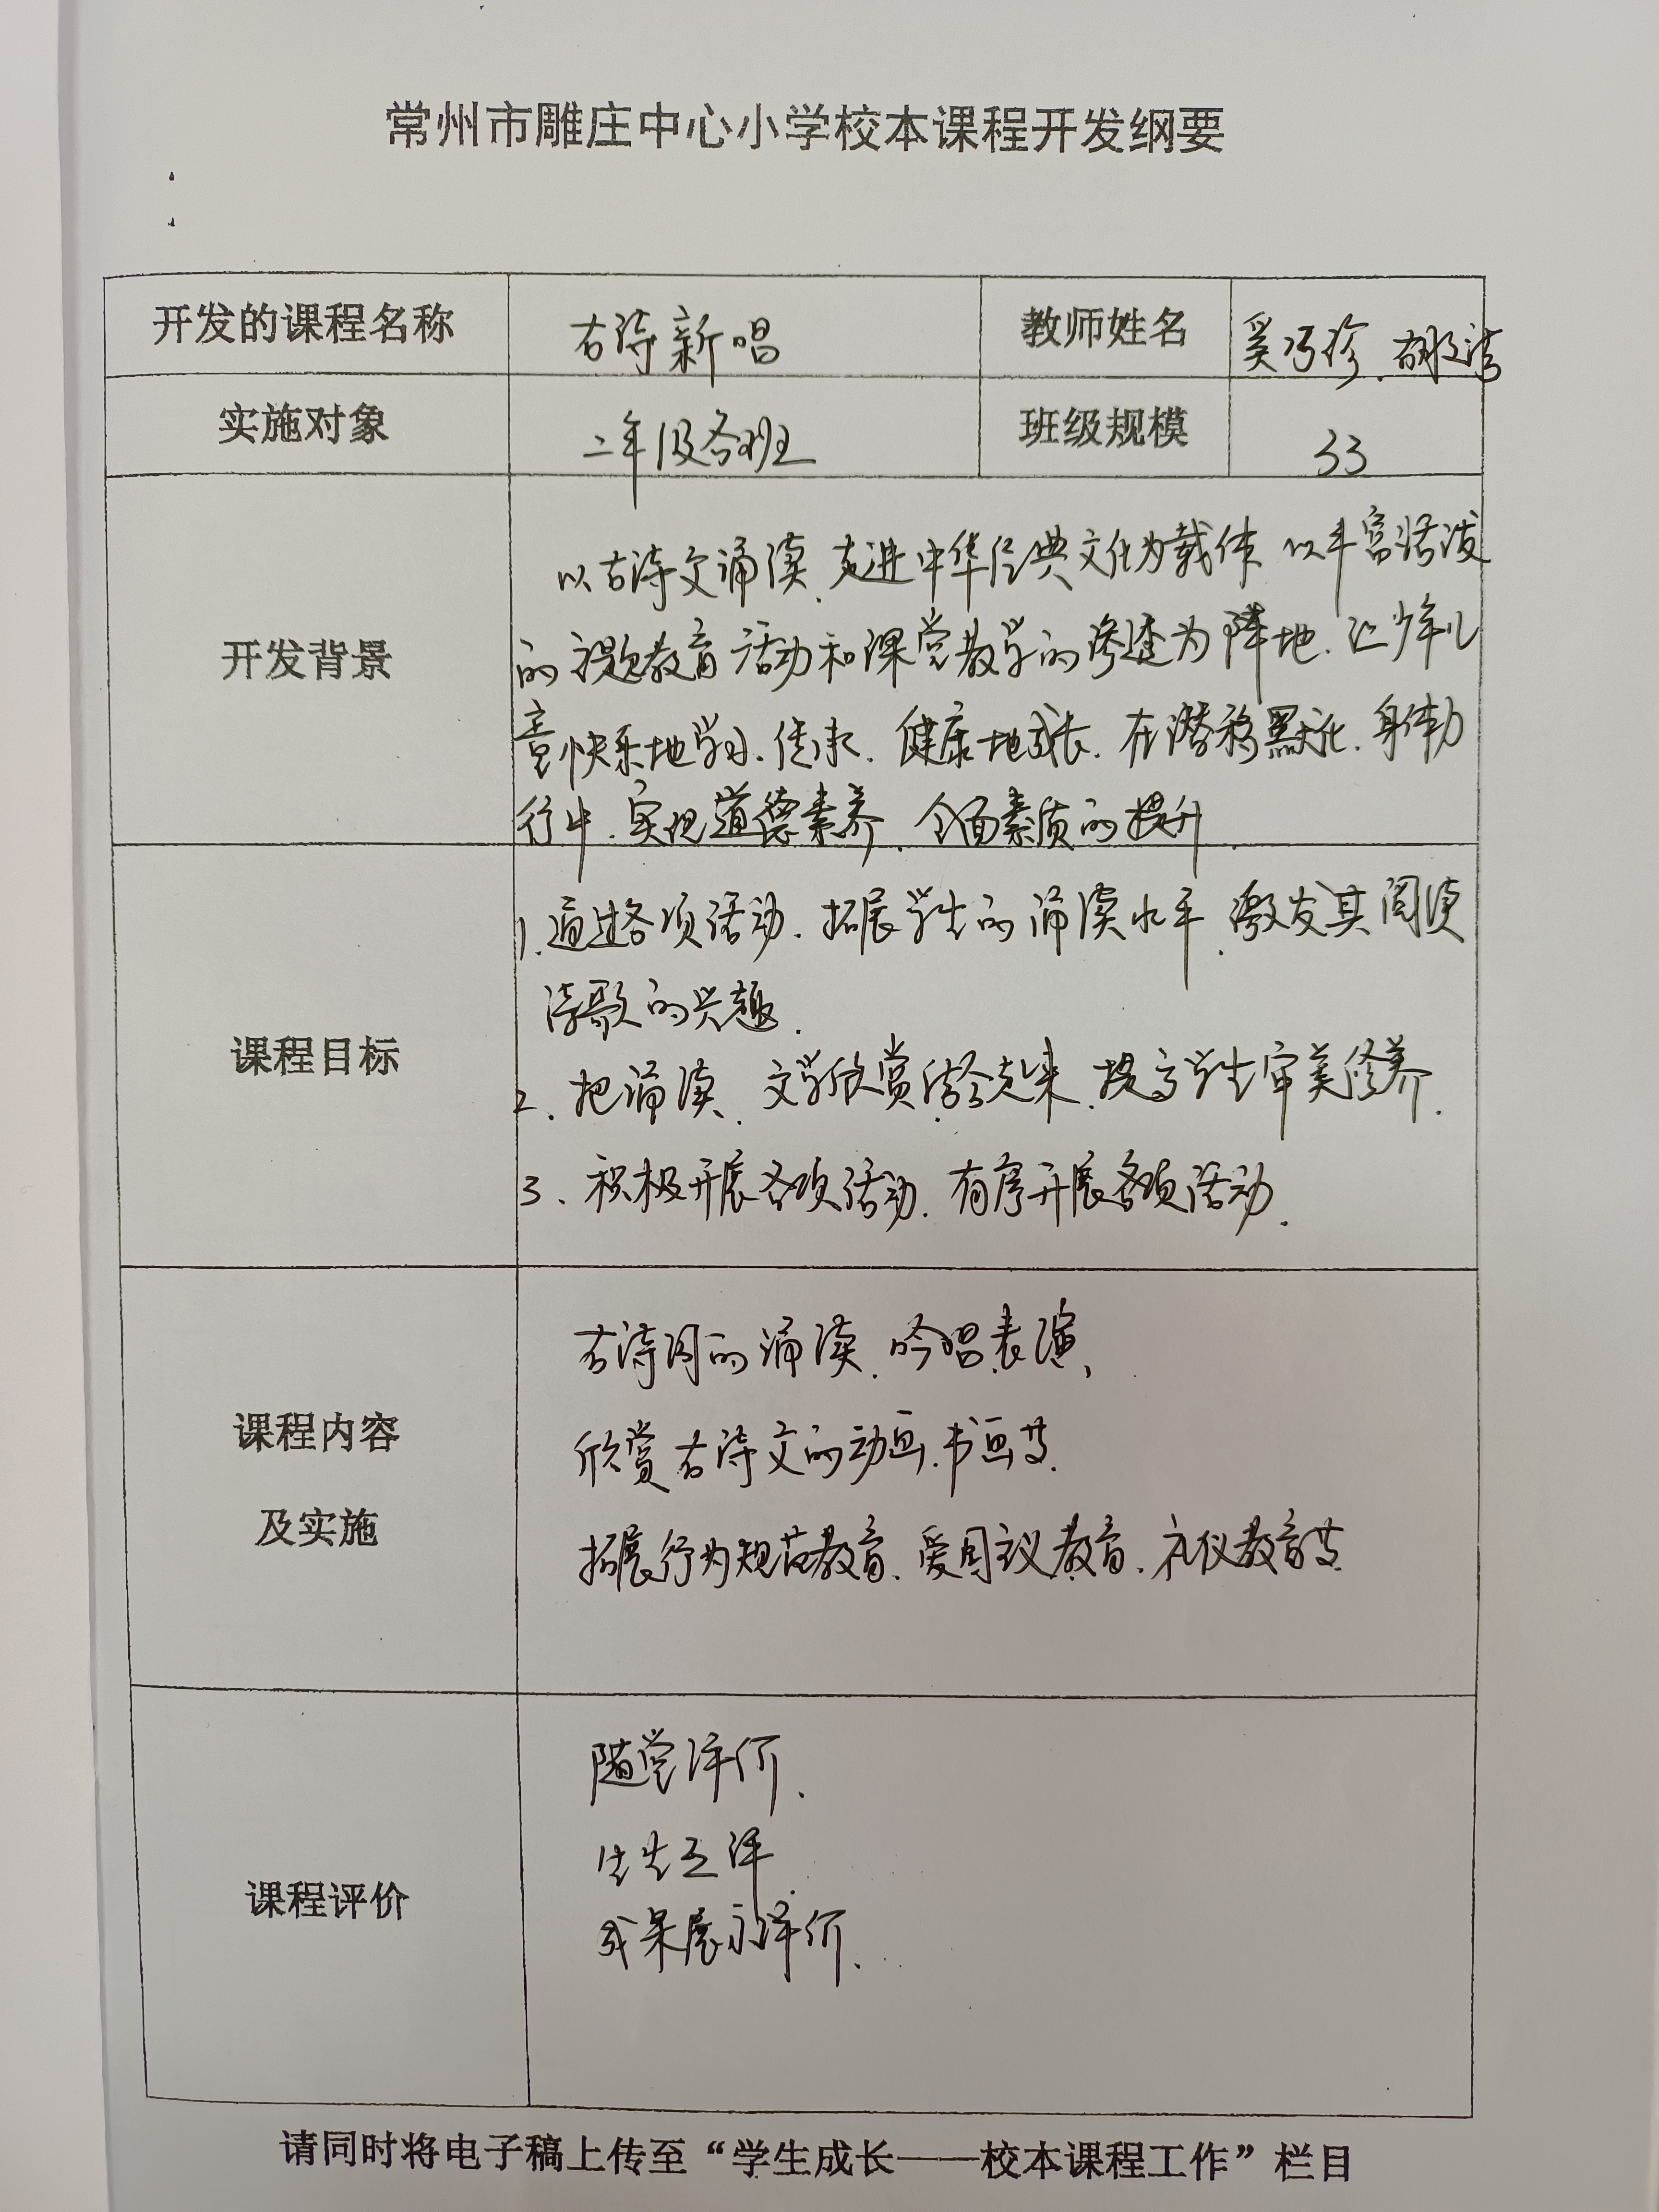 常州市雕庄中心小学校本课程开发纲要
开发的课程名称 古诗新唱 教师姓名 奚巧珍、胡
实施对象 二年级各班 班级规模 33
以古诗文诵读、走进中华经典文化为载体 以丰富活泼
开发背景 的主题教育活动和课堂教学的渗透为阵地、让少年儿
童快乐地学习、传承、健康地成长、在潜移默化、身体力
行中、实现道德素养、全面素质的提升
1.通过各项活动、拓展学生的诵读水平、激发其阅读
诗歌的兴趣.
课程目标
2、把诵读、文学欣赏结合起来、提高学生审美修养.
3、积极开展各项活动、有序开展各项活动.
古诗词的诵读、吟唱表演、
课程内容 欣赏古诗文的动画、书画等.
及实施 拓展行为规范教育、爱国主义教育、礼仪教育等.
随堂评价、
生生互评、
课程评价 成果展示评价、
请同时将电子稿上传至“学生成长——校本课程工作”栏目